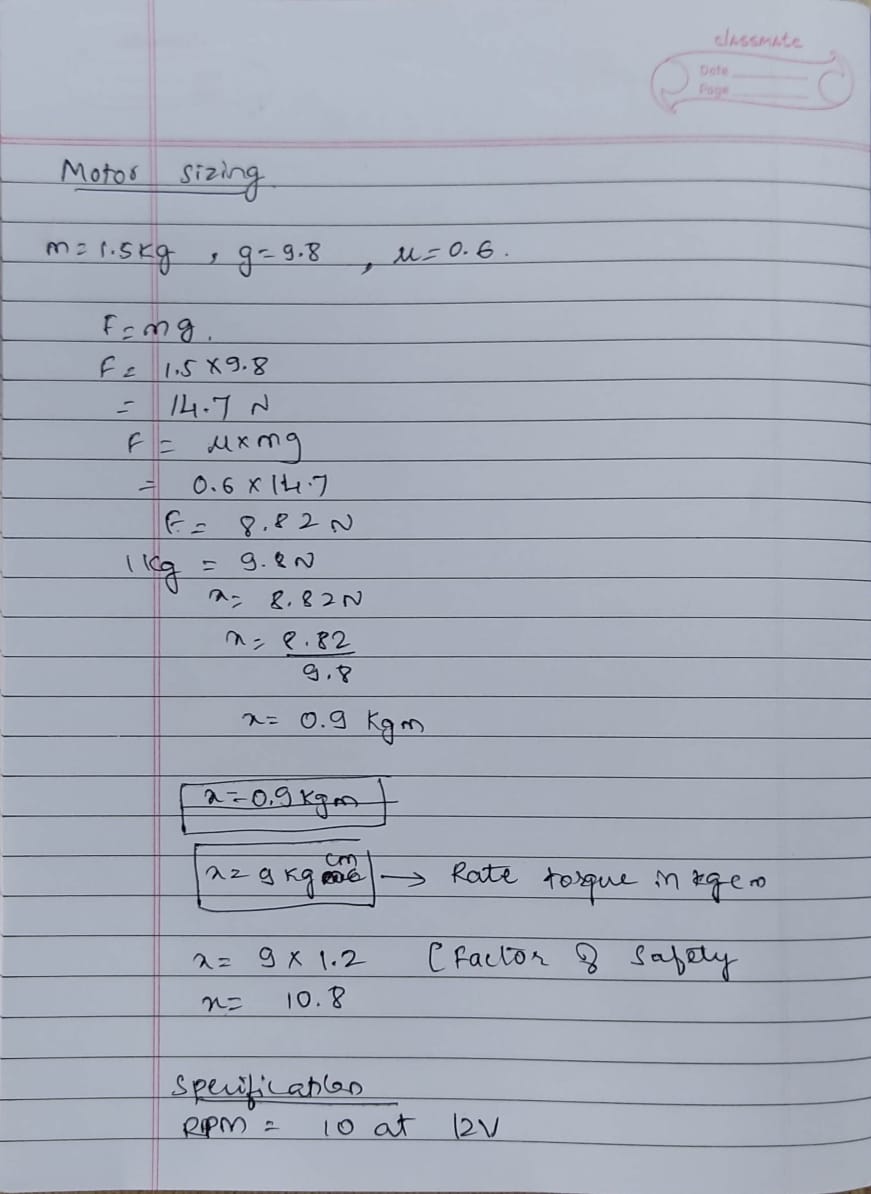 classmate
Date
Page
Motor sizing
m = 1.5kg , g = 9.8 , μ = 0.6.
F = mg.
F = 1.5 × 9.8
= 14.7 N
F = μ × mg
= 0.6 × 14.7
F = 8.82 N
1 kg = 9.8 N
x = 8.82 N
x = 8.82
9.8
x = 0.9 Kgm
x = 0.9 kgm
x = 9 kg cm → Rate torque in kgcm
x = 9 × 1.2 [ Factor of Safety
x = 10.8
Specification
RPM = 10 at 12V